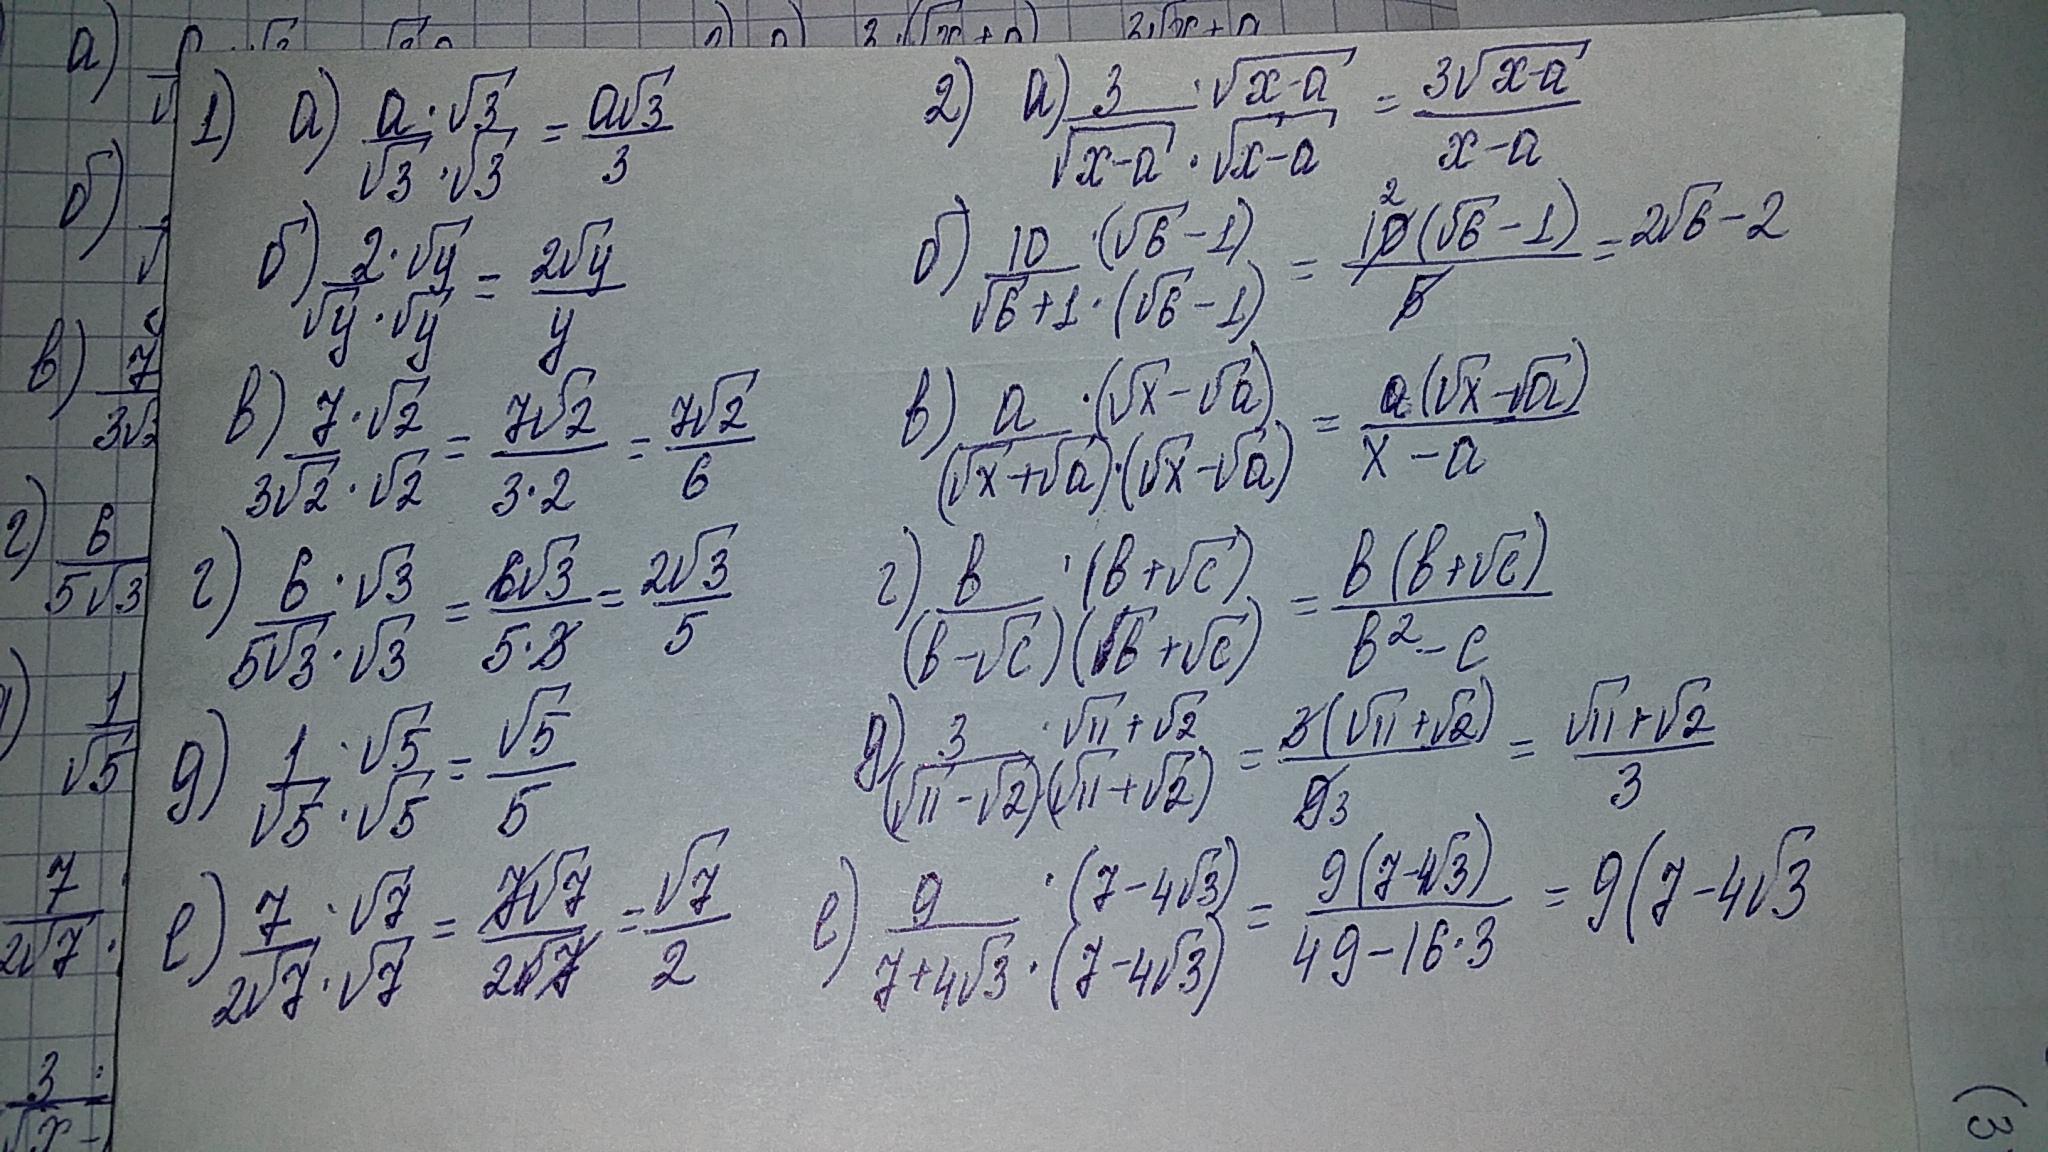 1) а) a·√3 / √3·√3 = a√3 / 3
б) 2·√y / √y·√y = 2√y / y
в) 7·√2 / 3√2·√2 = 7√2 / 3·2 = 7√2 / 6
г) 6·√3 / 5√3·√3 = 6√3 / 5·3 = 2√3 / 5
д) 1·√5 / √5·√5 = √5 / 5
е) 7·√7 / 2√7·√7 = 7√7 / 2·7 = √7 / 2
2) а) 3·√x-a / √x-a·√x-a = 3√x-a / x-a
б) 10·(√6-1) / √6+1·(√6-1) = 10 2 (√6-1) / 5 = 2√6-2
в) a·(√x-√a) / (√x+√a)·(√x-√a) = a(√x-√a) / x-a
г) b·(b+√c) / (b-√c)(b+√c) = b(b+√c) / b²-c
д) 3·√11+√2 / (√11-√2)(√11+√2) = 3(√11+√2) / 9 3 = √11+√2 / 3
е) 9·(7-4√3) / 7+4√3·(7-4√3) = 9(7-4√3) / 49-16·3 = 9(7-4√3
а)
б)
в) 7 / 3√2
г) 6 / 5√3
1 / √5
7 / 2√7·
3· / √x-
(3